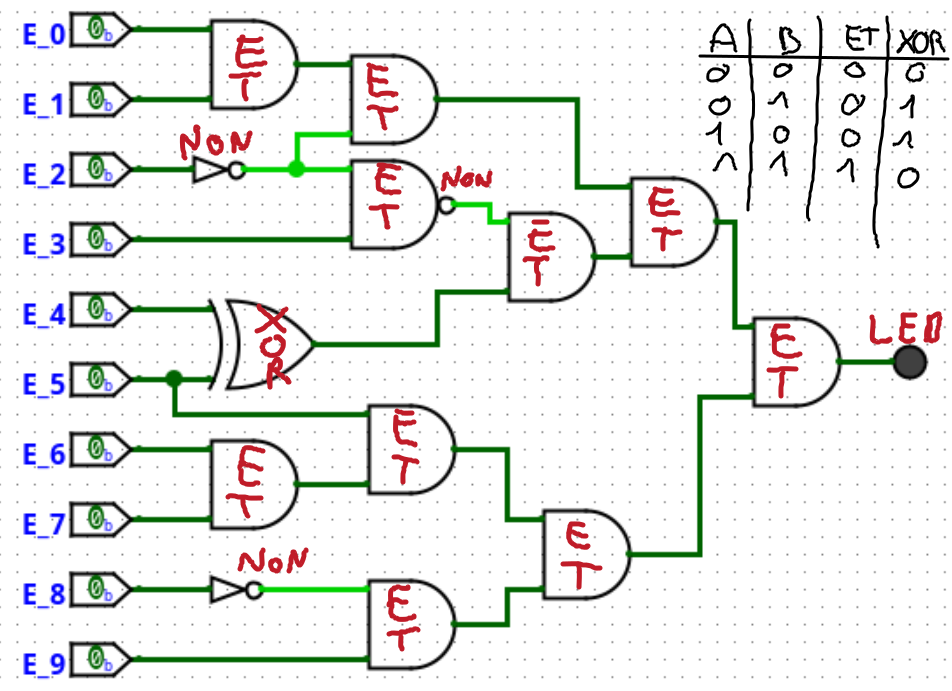 E_0 0b
E_1 0b
E_2 0b
E_3 0b
E_4 0b
E_5 0b
E_6 0b
E_7 0b
E_8 0b
E_9 0b
ET
ET
NON
ET
NON
ET
ET
XOR
ET
LED
ET
ET
ET
NON
ET
A B ET XOR
0 0 0 0
0 1 0 1
1 0 0 1
1 1 1 0